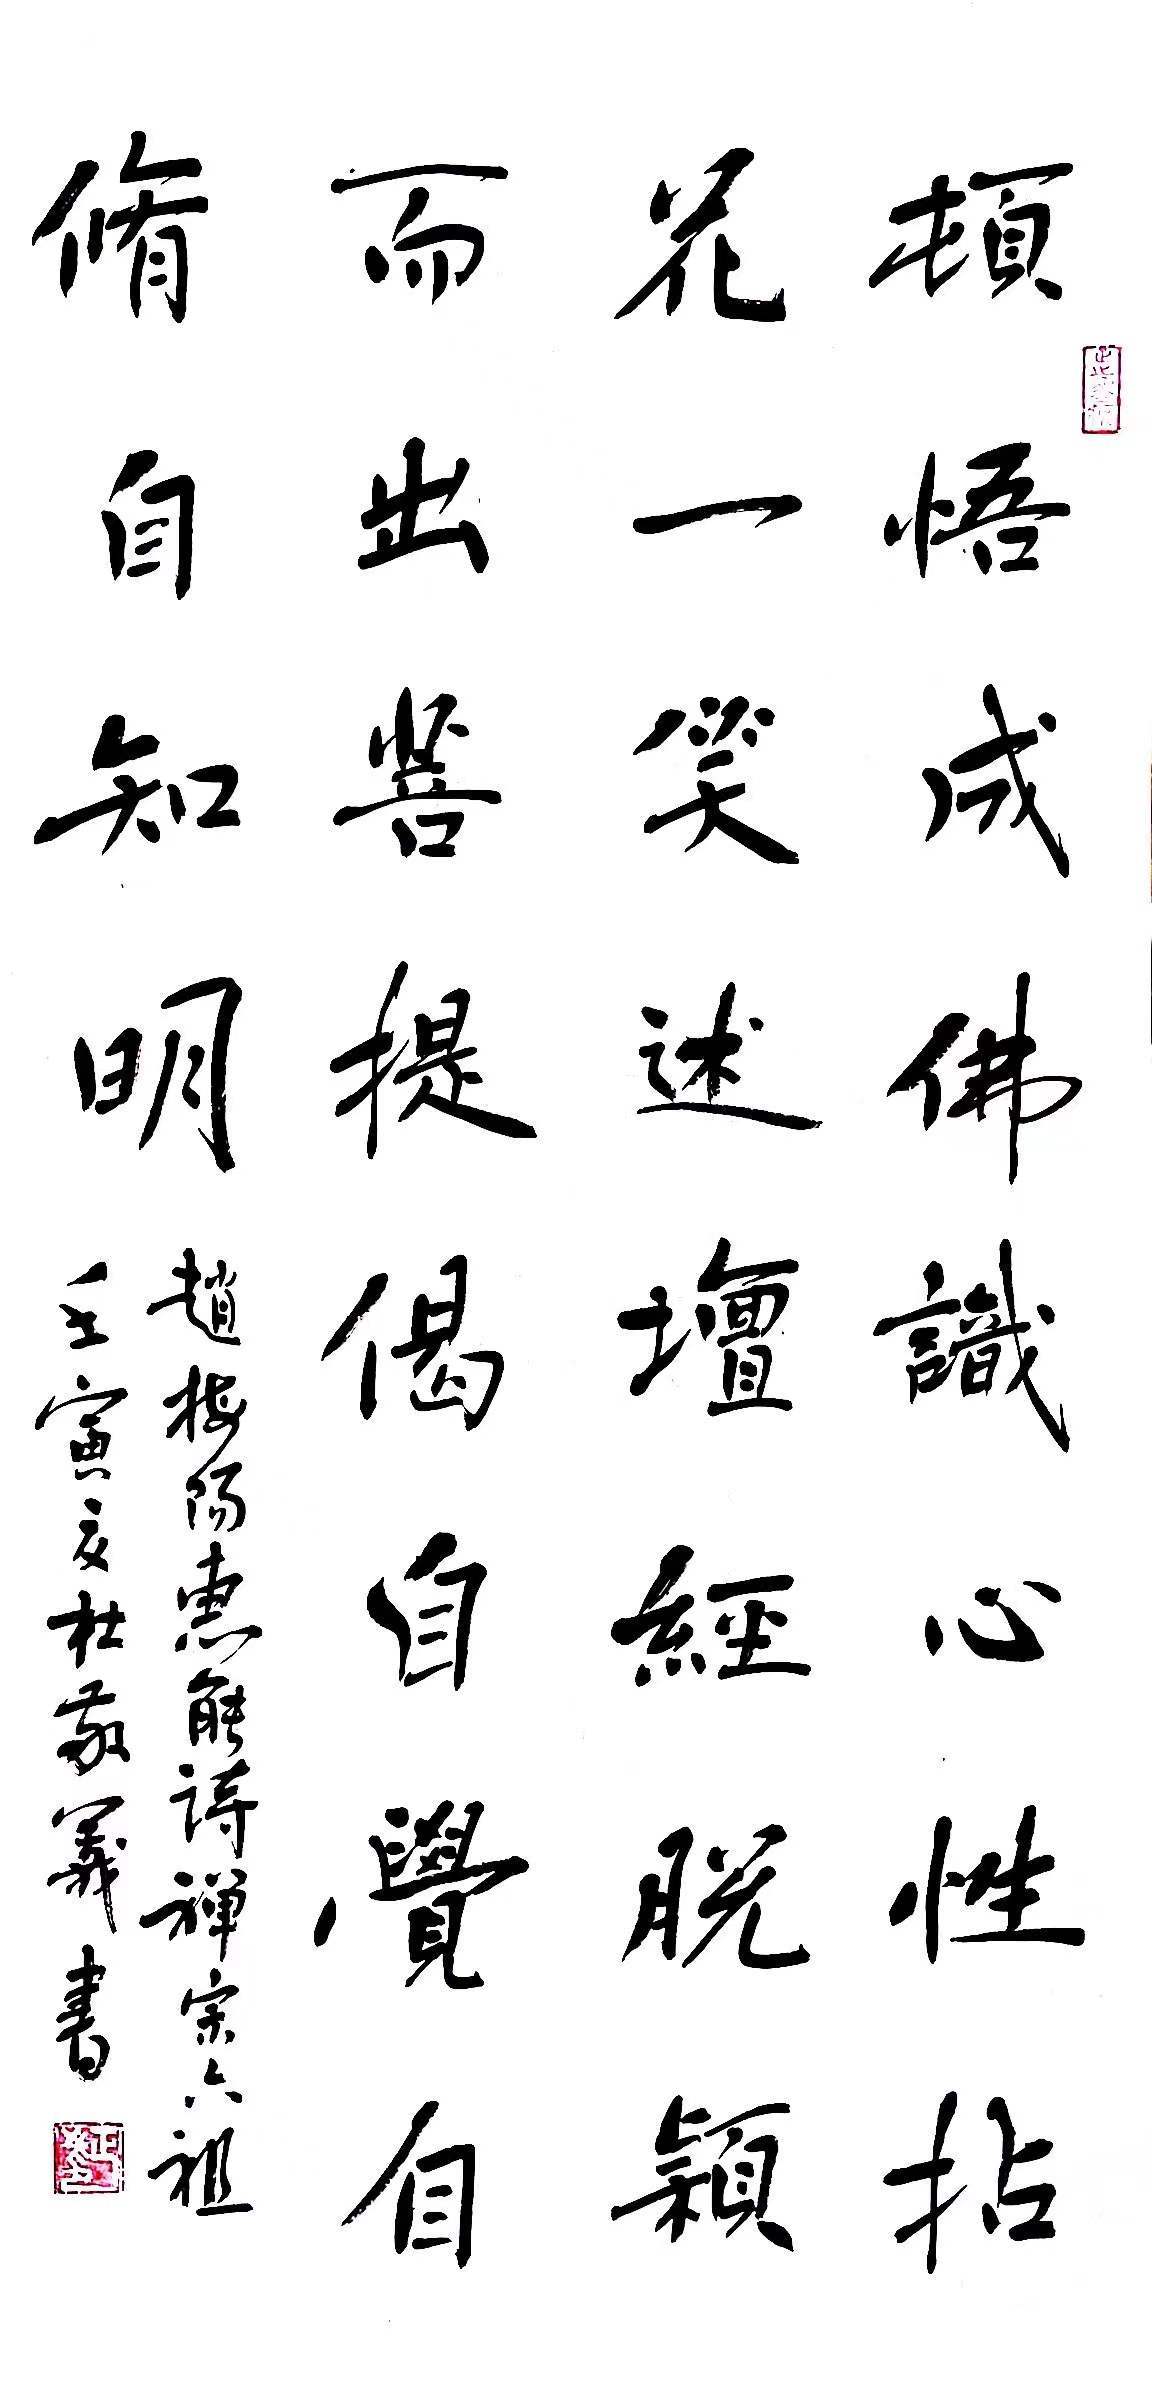 頓悟成佛識心性拈
花一笑述壇經脫穎
而出菩提偈自覺自
脩自知明
趙樸陽惠能詩禪宗六祖
壬寅亥杜敬義書